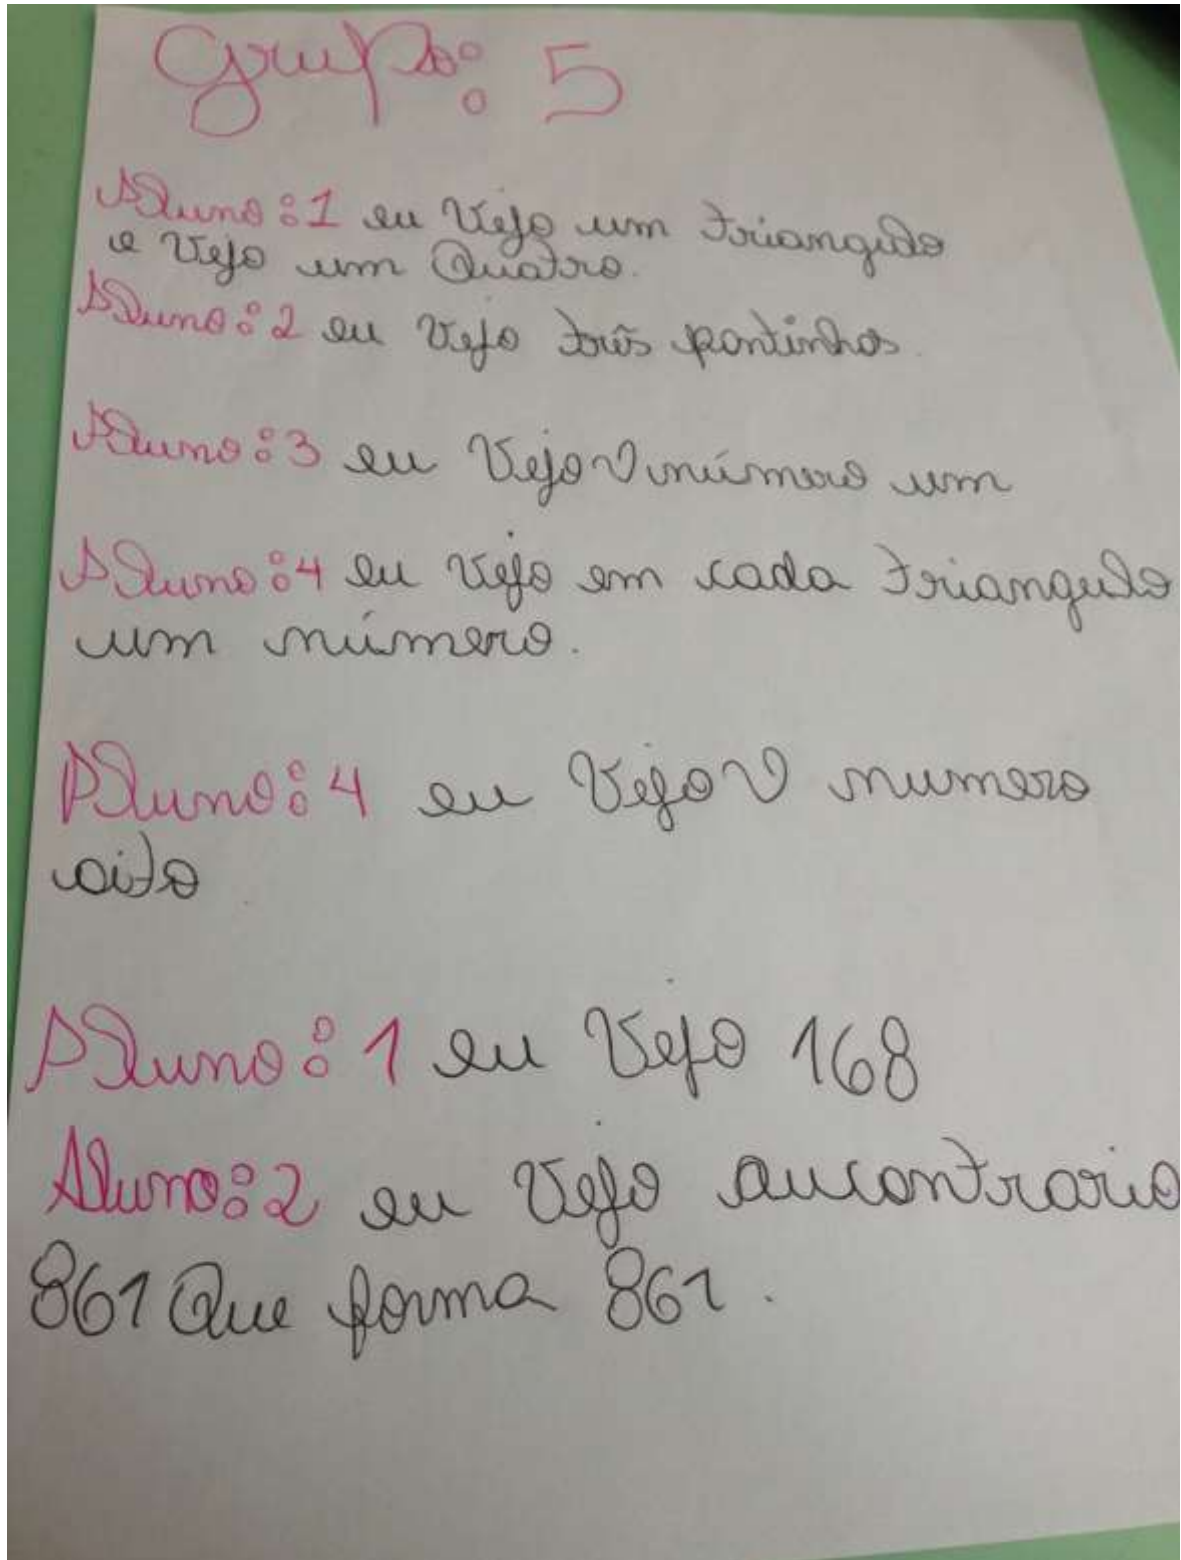 Grupo: 5
Aluno:1 eu Vejo um triangulo
e Vejo um Quatro.
Aluno:2 eu Vejo três pontinhos.
Aluno:3 eu Vejo O número um
Aluno:4 eu Vejo em cada triangulo
um número.
Aluno:4 eu Vejo O numero
oito
Aluno:1 eu Vejo 168
Aluno:2 eu Vejo aucontrario
861 Que forma 861.